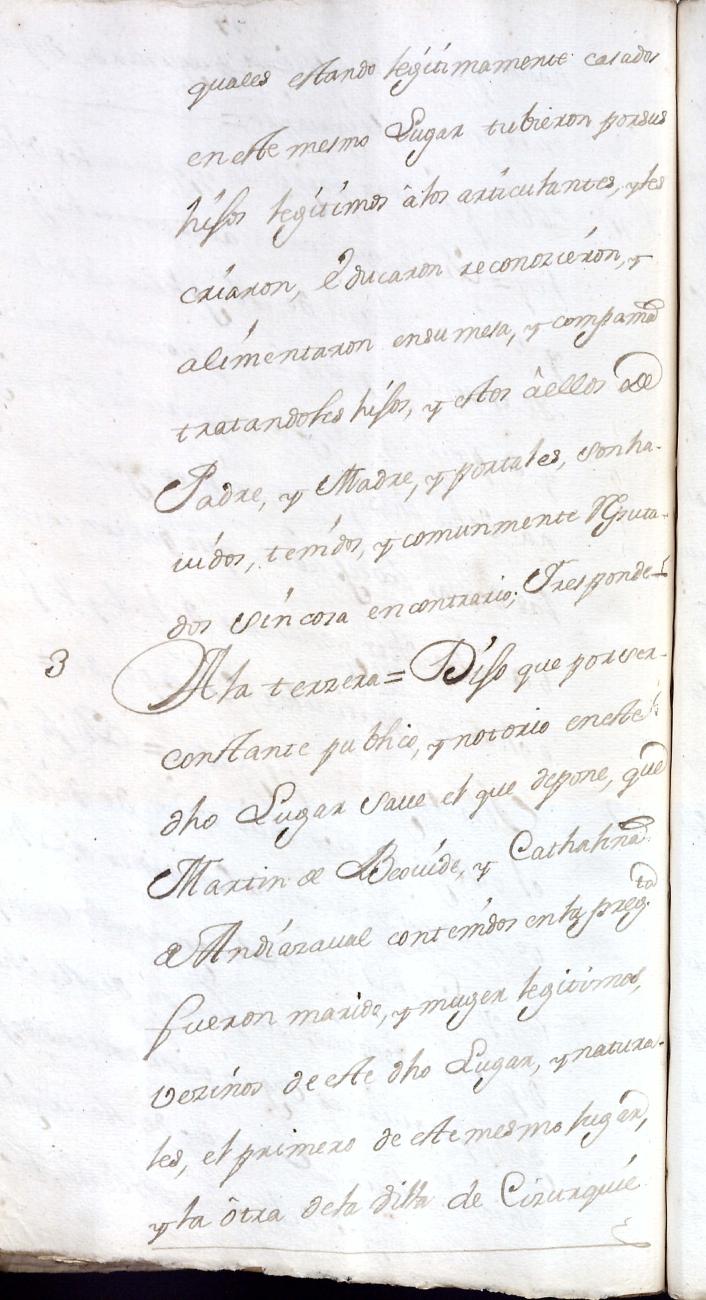 quales estando legítimamente casados
en este mesmo Lugar tubieron por sus
hísos legítímos â los artículantes, y les
críaron, êducaron reconozieron, y
alímentaron en su mesa, y compamã
tratandoles hísos, y estos âellos de
Padre, y Madre, y por tales, son ha-
uídos, tenídos, y comunmente reputa-
dos sín cosa en contrario; Y responde
3 A la terzera = Díso que por ser
constante publico, y notorio en este
dho Lugar saue el que depone, que
Martin de Beouíde, y Cathalina
de Andíazaual contenídos en la preg.ta
fueron marido, y muger legitimos,
vezínos de este dho Lugar, y natura-
les, el primero de este mesmo lugar,
y la ôtra dela villa de Cizurquíe